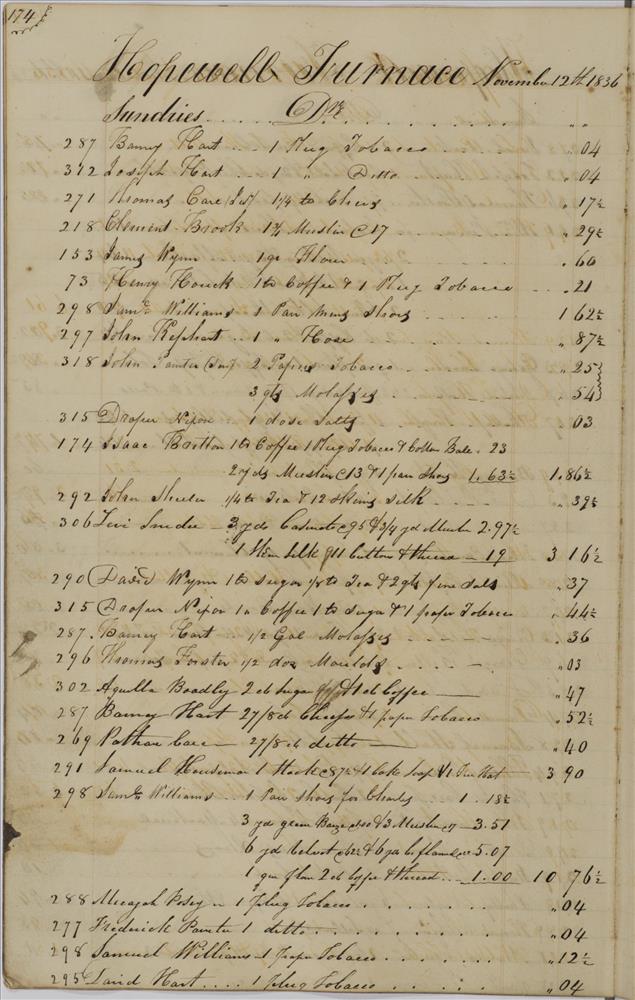 174
Hopewell Furnace November 12th 1836
Sundries Dr
287 Barney Hart 1 Plug Tobacco " 04
312 Joseph Hart 1 " Ditto " 04
271 Thomas Care 1¼ lb Cheese " 17½
218 Clement Brook 1¾ Muslin @17 " 29½
153 James Wynn 1 qr Flour " 66
73 Henry Houck 1 lb Coffee & 1 Plug Tobacco " 21
298 Saml Williams 1 Pair Mens Shoes 1 62½
297 John Kephart 1 " Hose " 87½
318 John Painter 2 Papers Tobacco " 25
3 qts Molasses " 54
315 Draper Nixon 1 dose Salts " 03
174 Isaac Britton 1 lb Coffee 1 Plug Tobacco & Cotton Bale . 23
2 yds Muslin @13 & 1 pair Shoes 1.63½ 1.86½
292 John Sheeler ¼ lb Tea & 12 Skeins Silk " 39½
306 Levi 3 yds Casinett @95 & ¾ yd Muslin 2.97½
1 Skein Silk 11 buttons & thread 19 3 16½
290 David Wynn 1 lb Sugar ⅛ lb Tea & 2 qts fine Salt " 37
315 Draper Nixon 1 lb Coffee 1 lb Sugar & 1 paper Tobacco " 44½
287 Barney Hart ½ Gal Molasses " 36
296 Thomas Forster ½ doz Moulds " 03
302 Aquilla Bradley 2 lb Sugar & 1 lb Coffee " 47
287 Barney Hart 2 7/8 lb Cheese & 1 paper Tobacco " 52½
269 Nathan Care 2 7/8 lb ditto " 40
291 Samuel Houseman 1 Stock @87½ 1 Cake Soap & 1 Fur Hat 3 90
298 Saml Williams 1 Pair Shoes for Charles 1 . 18½
3 yd green Baize & 3 Muslin 3.51
6 yd Velvet @62½ & 6 yd flannel 5.07
1 flour 2 lb Coffee & thread 1.00 10 76½
288 Micajah Posey 1 plug Tobacco " 04
277 Frederick Painter 1 ditto " 04
298 Samuel Williams 1 Paper Tobacco " 12½
295 David Hart 1 plug Tobacco " 04